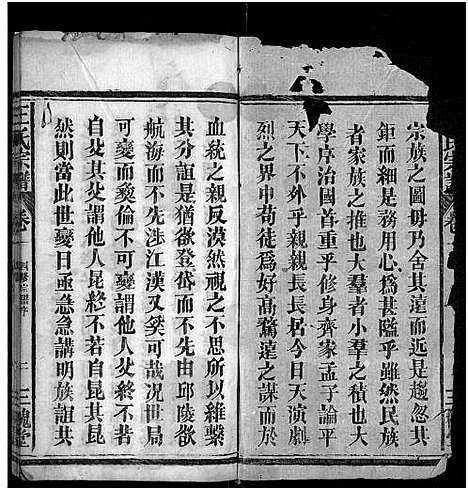 宗族之圖毋乃舍其遠而近是趨忽其
鉅而細是務用心為甚隘乎雖然民族
者家族之推也大羣者小羣之積也大
學序治國首重乎修身齊家孟子論平
天下不外乎親親長長居今日天演劇
烈之界中苟徒為好高騖遠之謀而於
血統之親反漠然視之不思所以維繫
其分誼是猶欲登岱而不先邱陵欲
航海而不先涉江漢又奚可哉況世局
可變而彝倫不可變他人不可變而
自父其父謂他人昆終不若自昆其昆
然則當此世變日亟急急講明族誼其
王氏宗譜 卷
三槐堂